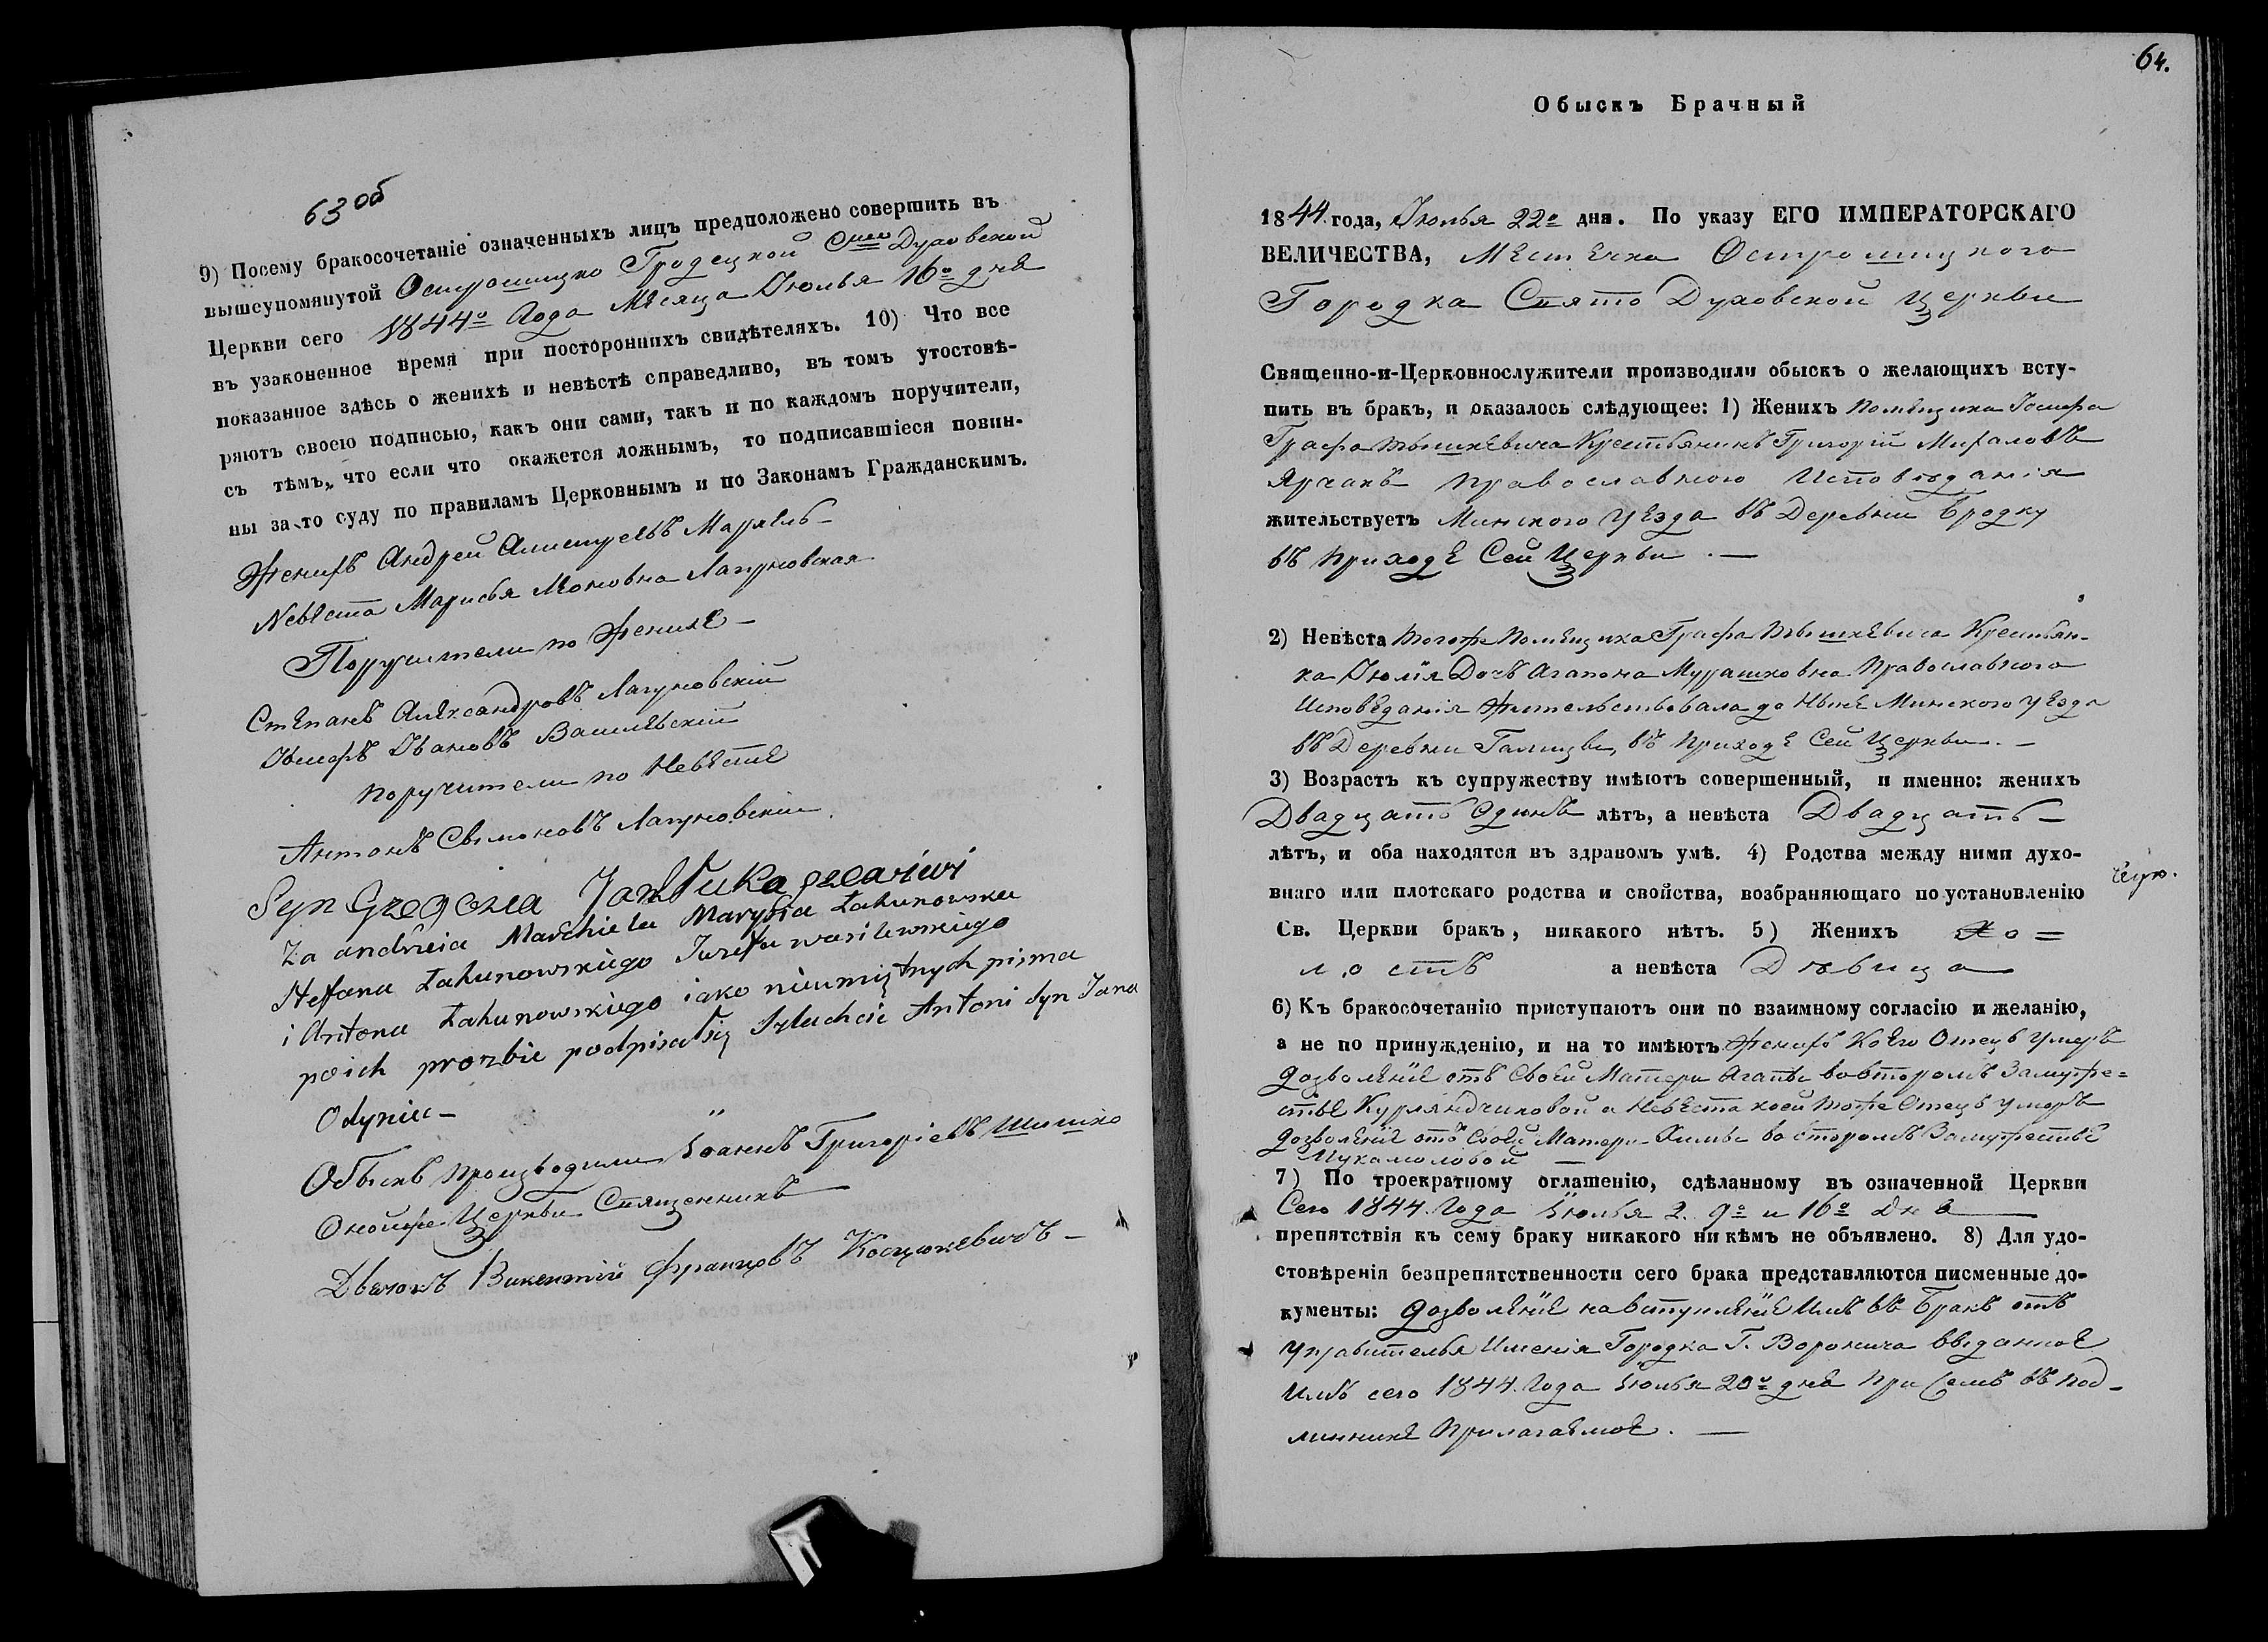 63 об
9) Посему бракосочетаніе означенныхъ лицъ предположено совершить въ
вышеупомянутой Острошицко Гродецкой Свято Духовской
Церкви сего 1844го Года Месяца Июлья 16о дня
въ узаконенное время при постороннихъ свидѣтеляхъ. 10) Что все
показанное здѣсь о женихѣ и невѣстѣ справедливо, въ томъ утостовѣ-
ряютъ своею подписью, какъ они сами, такъ и по каждомъ поручители,
съ тѣмъ, что если что окажется ложнымъ, то подписавшіеся повин-
ны за то суду по правиламъ Церковнымъ и по Законамъ Гражданскимъ.
Женихъ Андрей
Невеста Марисья Лагуновская
Поручители по Женихе
Степанъ Александровъ Лагуновскій
Иосифъ Ивановъ Василевскій
поручители по Невесте
Антонъ Симоновъ Лагуновскій
Syn Grzegorza
Za andrzeia Marchiela Marysia Łahunowska
Steffana Łahunowskiego Iuzefa wasilewskiego
i Antona Łahunowskiego iako nieumiętnych pisma
po ich prozbie podpisał się Szlachcic Antoni Syn Jana
Odyniec
Обыскъ производили Іоаннъ Григоріевъ Шишко
Оной же Церкви Священникъ
Дьячокъ Викентій Францовъ Косцюкевичъ
64.
Обыскъ Брачный
1844 года, Июлья 22о дня. По указу ЕГО ИМПЕРАТОРСКАГО
ВЕЛИЧЕСТВА, Местечка Острошицкого
Городка Свято Духовской Церкви
Священно-и-Церковнослужители производили обыскъ о желающихъ всту-
пить въ бракъ, и оказалось слѣдующее: 1) Женихъ Помещика Иосифа
Графа Тышкевича Крестьянинъ Григорій Михаловъ
Ярчакъ православного Исповеданія
жительствуетъ Минского Уезда въ Деревни Бродку
въ приходе Сей Церкви.
2) Невѣста тогоже Помещика Графа Тышкевича Крестьян-
ка Июлія Дочь Агапона Мурашковна Православного
Исповеданія Жительствовала до Ныне Минского Уезда
въ Деревни Галицы, въ приходе Сей Церкви.
3) Возрастъ къ супружеству имѣютъ совершенный, и именно: женихъ
Двадцать Одинъ лѣтъ, а невѣста Двадцать
лѣтъ, и оба находятся въ здравомъ умѣ. 4) Родства между ними духо-
внаго или плотскаго родства и свойства, возбраняющаго по установленію
Св. Церкви бракъ, никакого нѣтъ. 5) Женихъ Хо=
лостъ а невѣста Девица
6) Къ бракосочетанію приступаютъ они по взаимному согласію и желанію,
а не по принужденію, и на то имѣютъ Женихъ Коего Отецъ умеръ
дозволеніе отъ Своей Матери Агапы во второмъ Замуже=
стве Курляндчиковой а Невеста коей тоже Отецъ умеръ
дозволеніе отъ Своей Матери во второмъ Замужестве
Мукамоловой
7) По троекратному оглашенію, сдѣланному въ означенной Церкви
Сего 1844 Года Іюлья 2. 9о и 16о дня
препятствія къ сему браку никакого никѣмъ не объявлено. 8) Для удо-
стовѣренія безпрепятственности сего брака представляются писменные до-
кументы: дозволеніе на вступленіе имъ въ Бракъ отъ
управителья Именія Городка Г. Воронича выданное
имъ сего 1844 Года Іюлья 20о дня при Семъ въ под-
линнике прилагаемое.